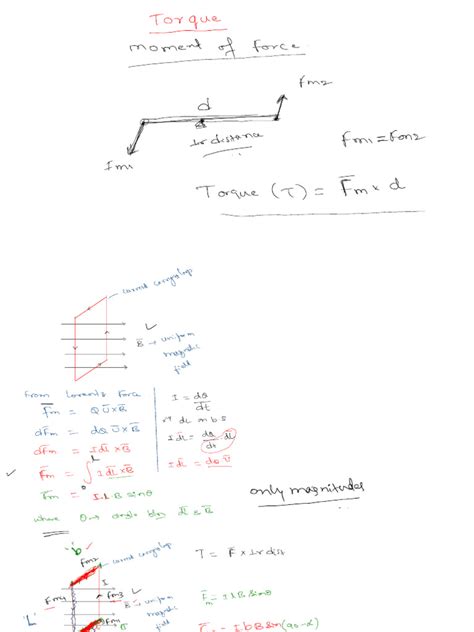 Torque
moment of Force
Fm2
d
⊥r distance
Fm1
Fm1 = Fm2
Torque (T) = F̅m × d
current carrying loop
B̅ → uniform
magnetic
field
From Lorentz Force
F̅m = Q U̅ × B̅
dF̅m = dQ U̅ × B̅
dF̅m = I dL̅ × B̅
F̅m = ∫₀ᴸ I dL̅ × B̅
Fm = I L B sinθ
where θ → angle b/w dL̅ & B̅
I = dQ/dt
dL m b s
I dL̅ = dQ/dt dL̅
I dL̅ = dQ U̅
only magnitudes
'b'
Fm2
current carrying loop
I
T = F × ⊥r dist
Fm4
Fm3
'L'
B̅ → uniform
magnetic
field
Fm1
F̅m = I L B sinθ
= I b B Sin(90-α)